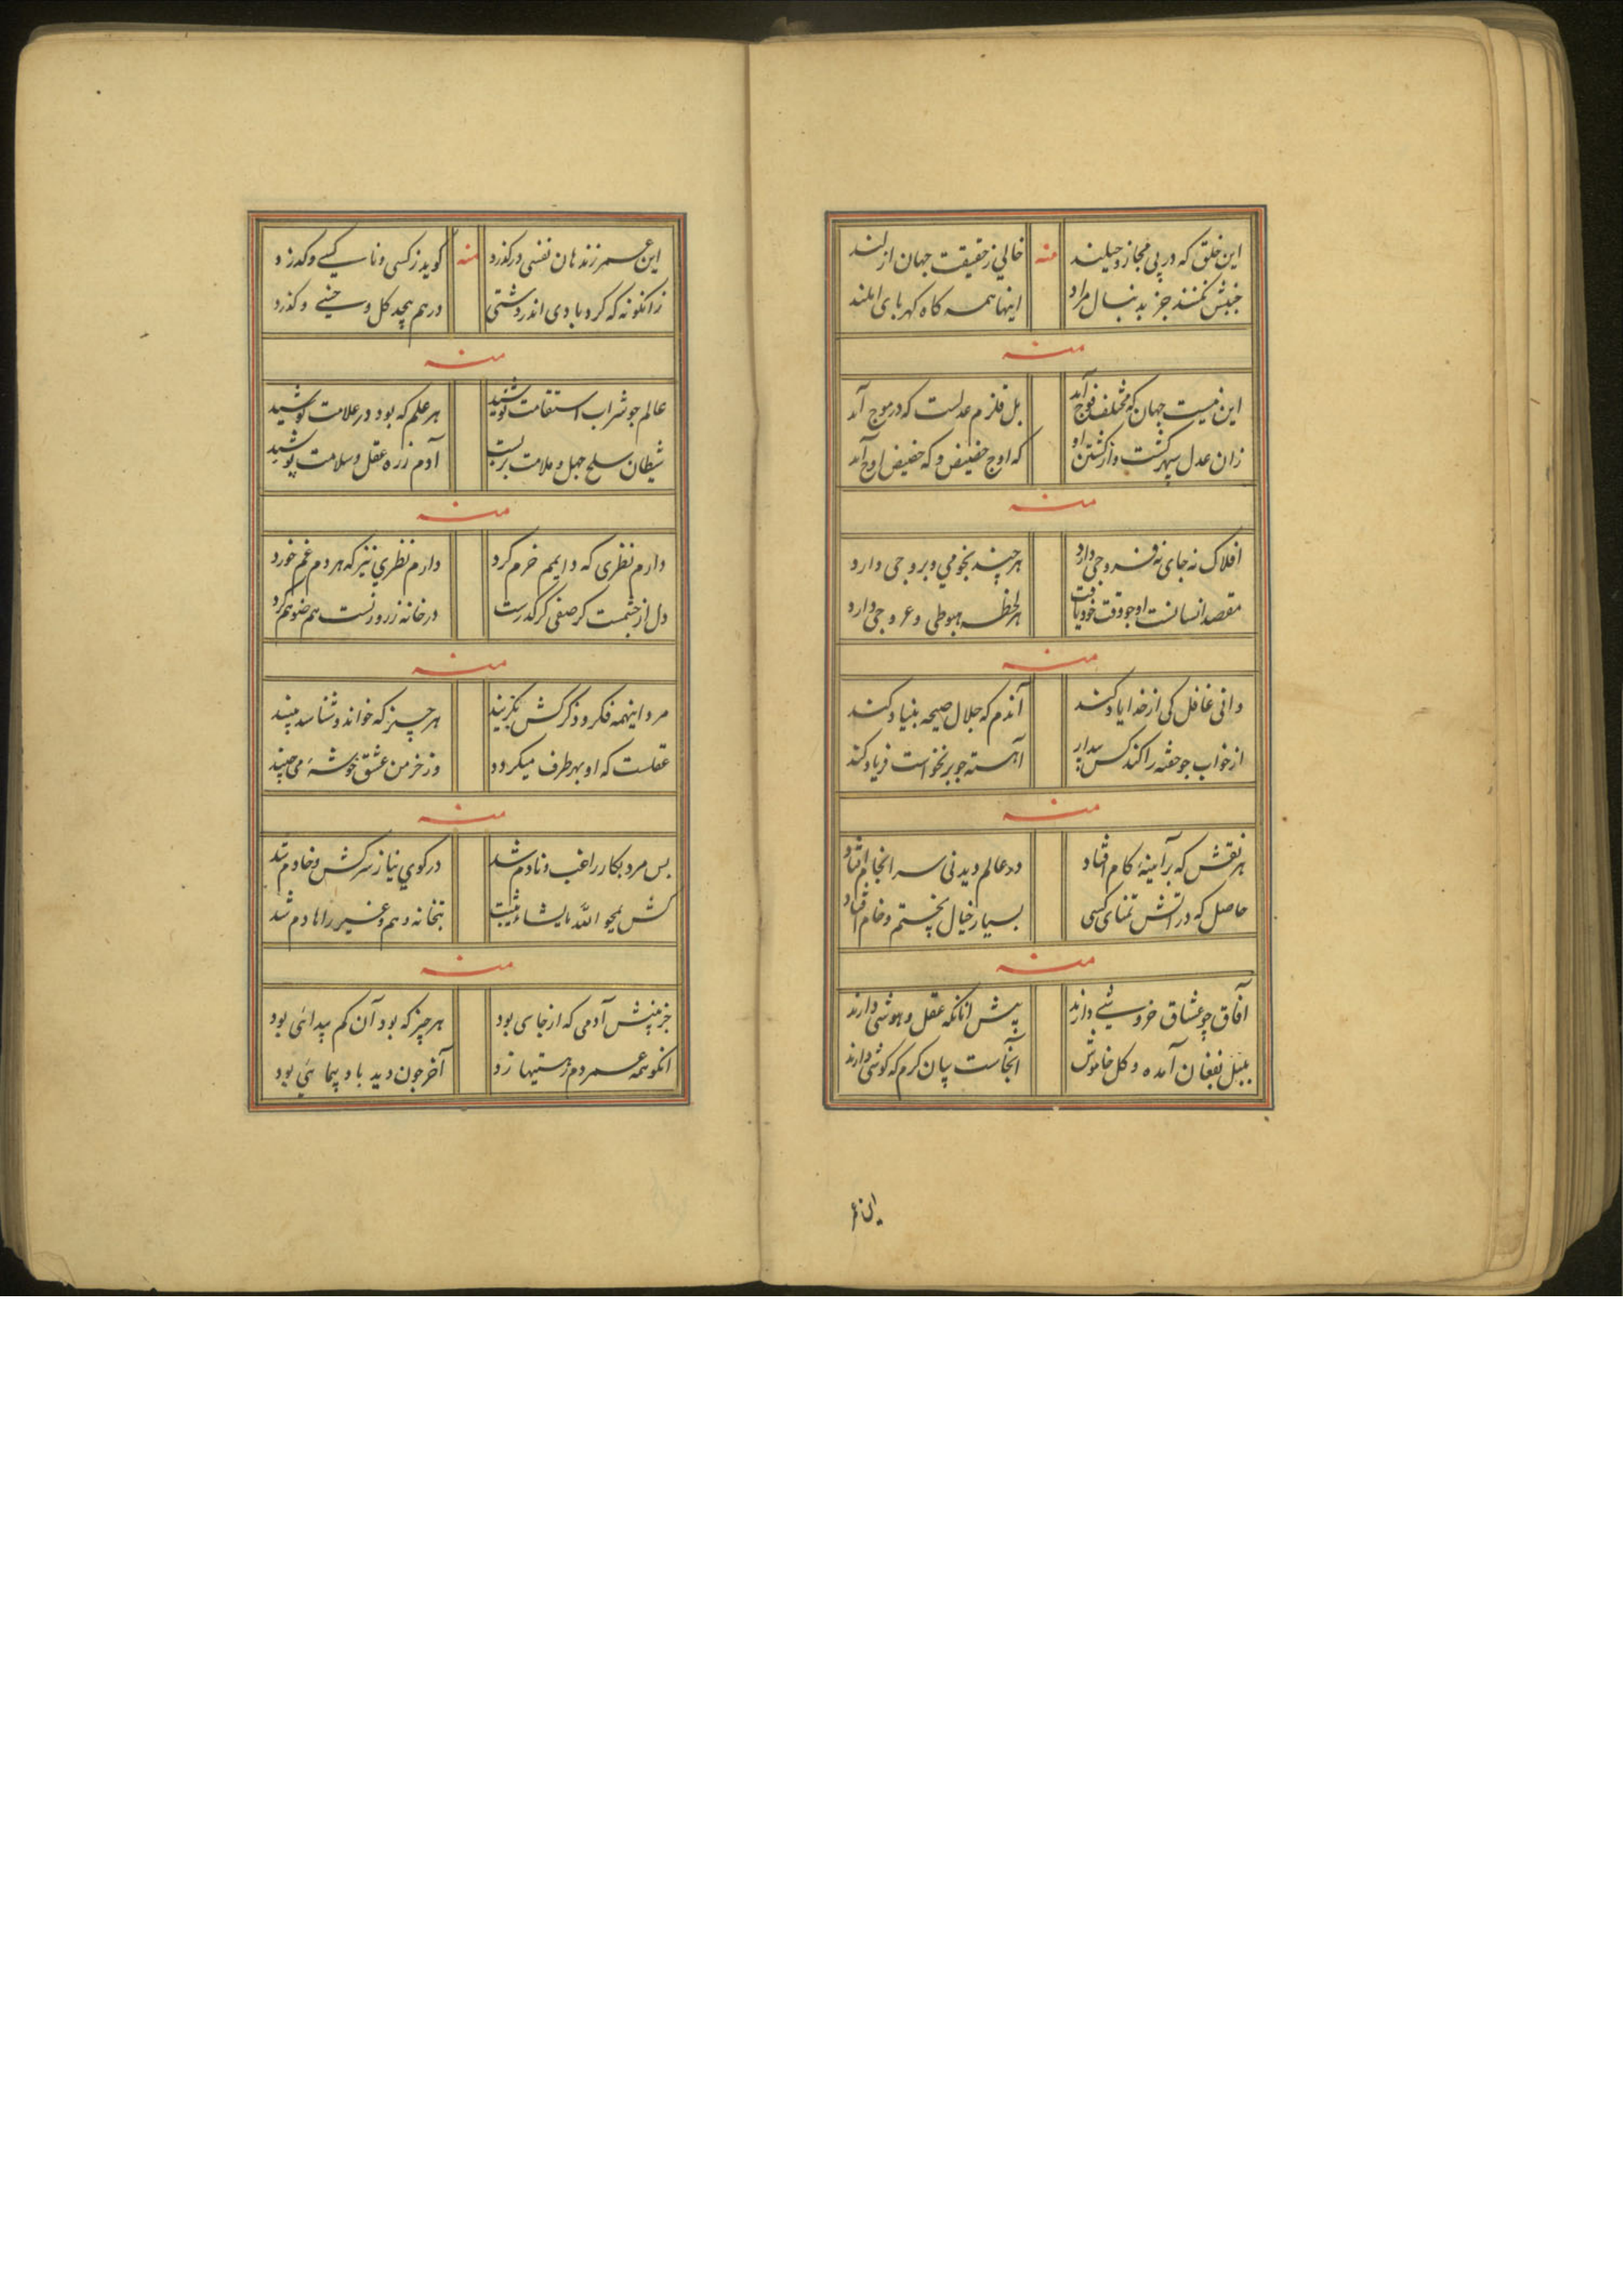 این خلق که در پی مجاز و حیلند منه خالی ز حقیقت جهان ازلند
جنبش نکنند جز بدنبال مراد اینها همه کاه کهربای املند
منه
این نیست جهان که مختلف فوج آمد بل قلزم عدلست که در موج آمد
زان عدل سپهر گشت و از گشتن او که اوج حضیض و که حضیض اوج آمد
منه
افلاک نه جای نه فروجی دارد هر چند نجومی و بروجی دارد
مقصد انسانست او جو وقت خود یافت هر لحظه هبوطی و عروجی دارد
منه
دانی غافل کی از خدا یاد کند آندم که جلال صیحه بنیاد کند
از خواب جو خفته را کند کس بیدار آهسته جو برنخواست فریاد کند
منه
هر نقش که بر آیینهٔ کام افتاد در عالم دیدنی سرانجام افتاد
حاصل که در آتش تمنای کسی بسیار خیال پختم و خام افتاد
منه
آفاق چو عشاق خروشی دارند پیش آنانکه عقل و هوشی دارند
بلبل بفغان آمده و کل خاموش آنجاست بیان کرم که گوشی دارند
این عمر
این عمر زند هان نفسی و گذرد منه گوید ز کسی و ناکسی و گذرد
زانگونه که گرد بادی اندر دشتی درهم پیچد کل و خسی و گذرد
منه
عالم جو شراب استقامت نوشید هر علم که بود در علامت کوشید
شیطان سلح جهل و ملامت بربست آدم زره عقل و سلامت پوشید
منه
دارم نظری که دایمم خرم کرد دارم نظری نیز که هر دم غم خورد
دل از جشمست کر صفی کر کدرست در خانه ز روزنست هم ضو هم کرد
منه
مرد اینهمه فکر و ذکر کش بگزیند هر چیز که خواند و شناسد بیند
عقلست که او بهر طرف میکردد وز خرمن عشق خوشهٔ می‌چیند
منه
بس مرد بکار راغب و نادم شد در کوی نیاز سرکش و خادم شد
کش یمحو الله مایشاء و یثبت بتخانه و هم و غیر را هادم شد
منه
جز بینش آدمی که از جایی بود هر چیز که بود آن کم پیدائی بود
آنکو همه عمر دم ز هستیها زد آخر چون دید باد پیمائی بود